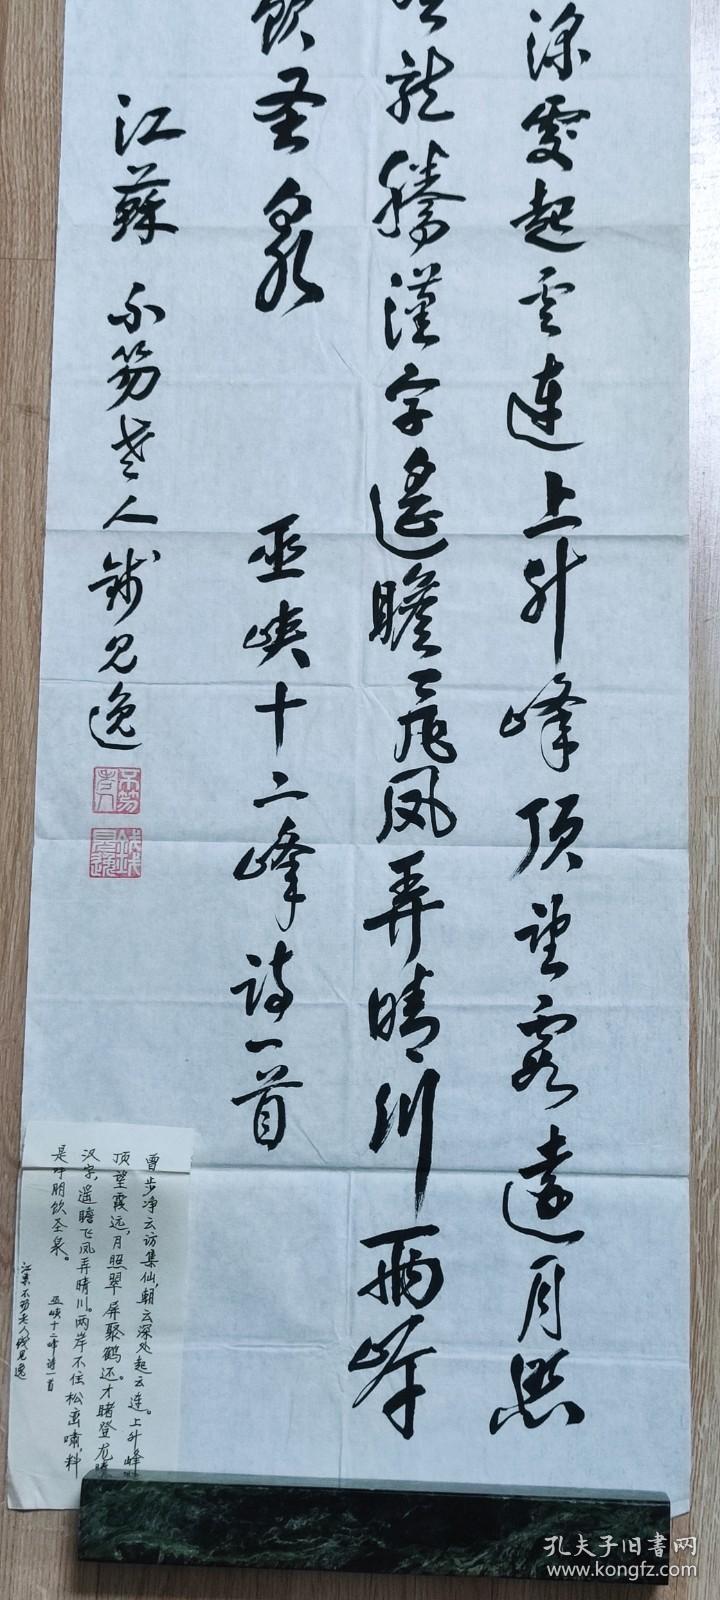 深處起云连上升峰顶望霞遠月照
龍騰漢字遙瞻飛凤弄晴川兩岸
飲圣泉 巫峡十二峰诗一首
江蘇 不笏老人钱見逸
曾步净云访集仙,朝云深处起云连。上升峰
顶望霞远,月照翠屏聚鹤还。才睹登龙腾
汉宇,遥瞻飞凤弄晴川。两岸不住松峦啸,料
是呼朋饮圣泉。 巫峡十二峰诗一首
江苏不笏老人钱见逸
孔夫子旧书网
www.kongfz.com